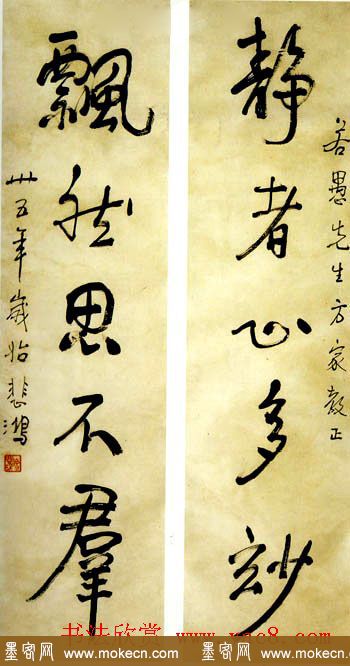 若愚先生方家教正
静者心多妙
飄然思不羣
卅五年歲始悲鴻
书法欣赏 www.yac8.com
墨客网 www.mokecn.com
墨客网 www.mokecn.com